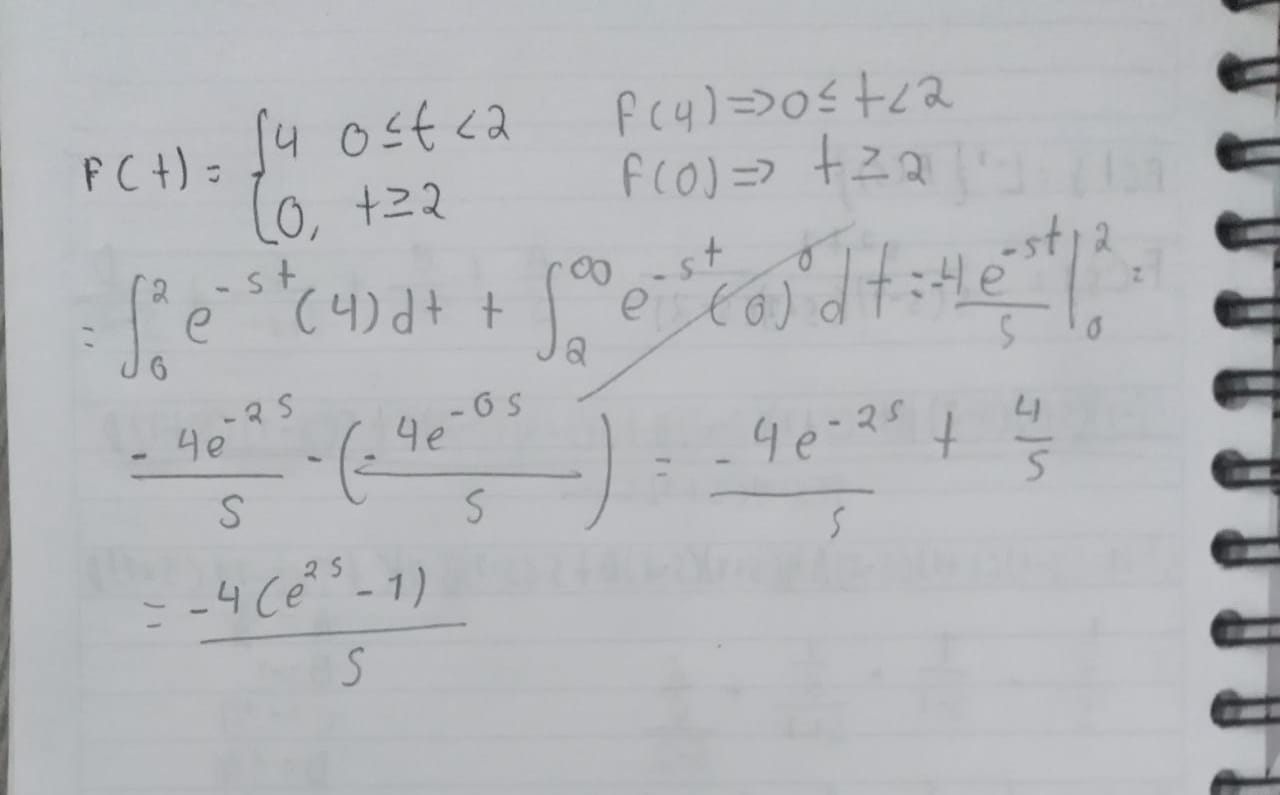 F(t) = { 4 0 ≤ t < 2 F(4) => 0 ≤ t < 2
{ 0, t ≥ 2 F(0) => t ≥ 2
= ∫₀² e^{-st} (4) dt + ∫₂^∞ e^{-st} (0) dt^0 = -4e^{-st}/s |₀² =
-4e^{-2s}/s - (-4e^{-0s}/s) = -4e^{-2s}/s + 4/s
= -4(e^{2s} - 1)/s